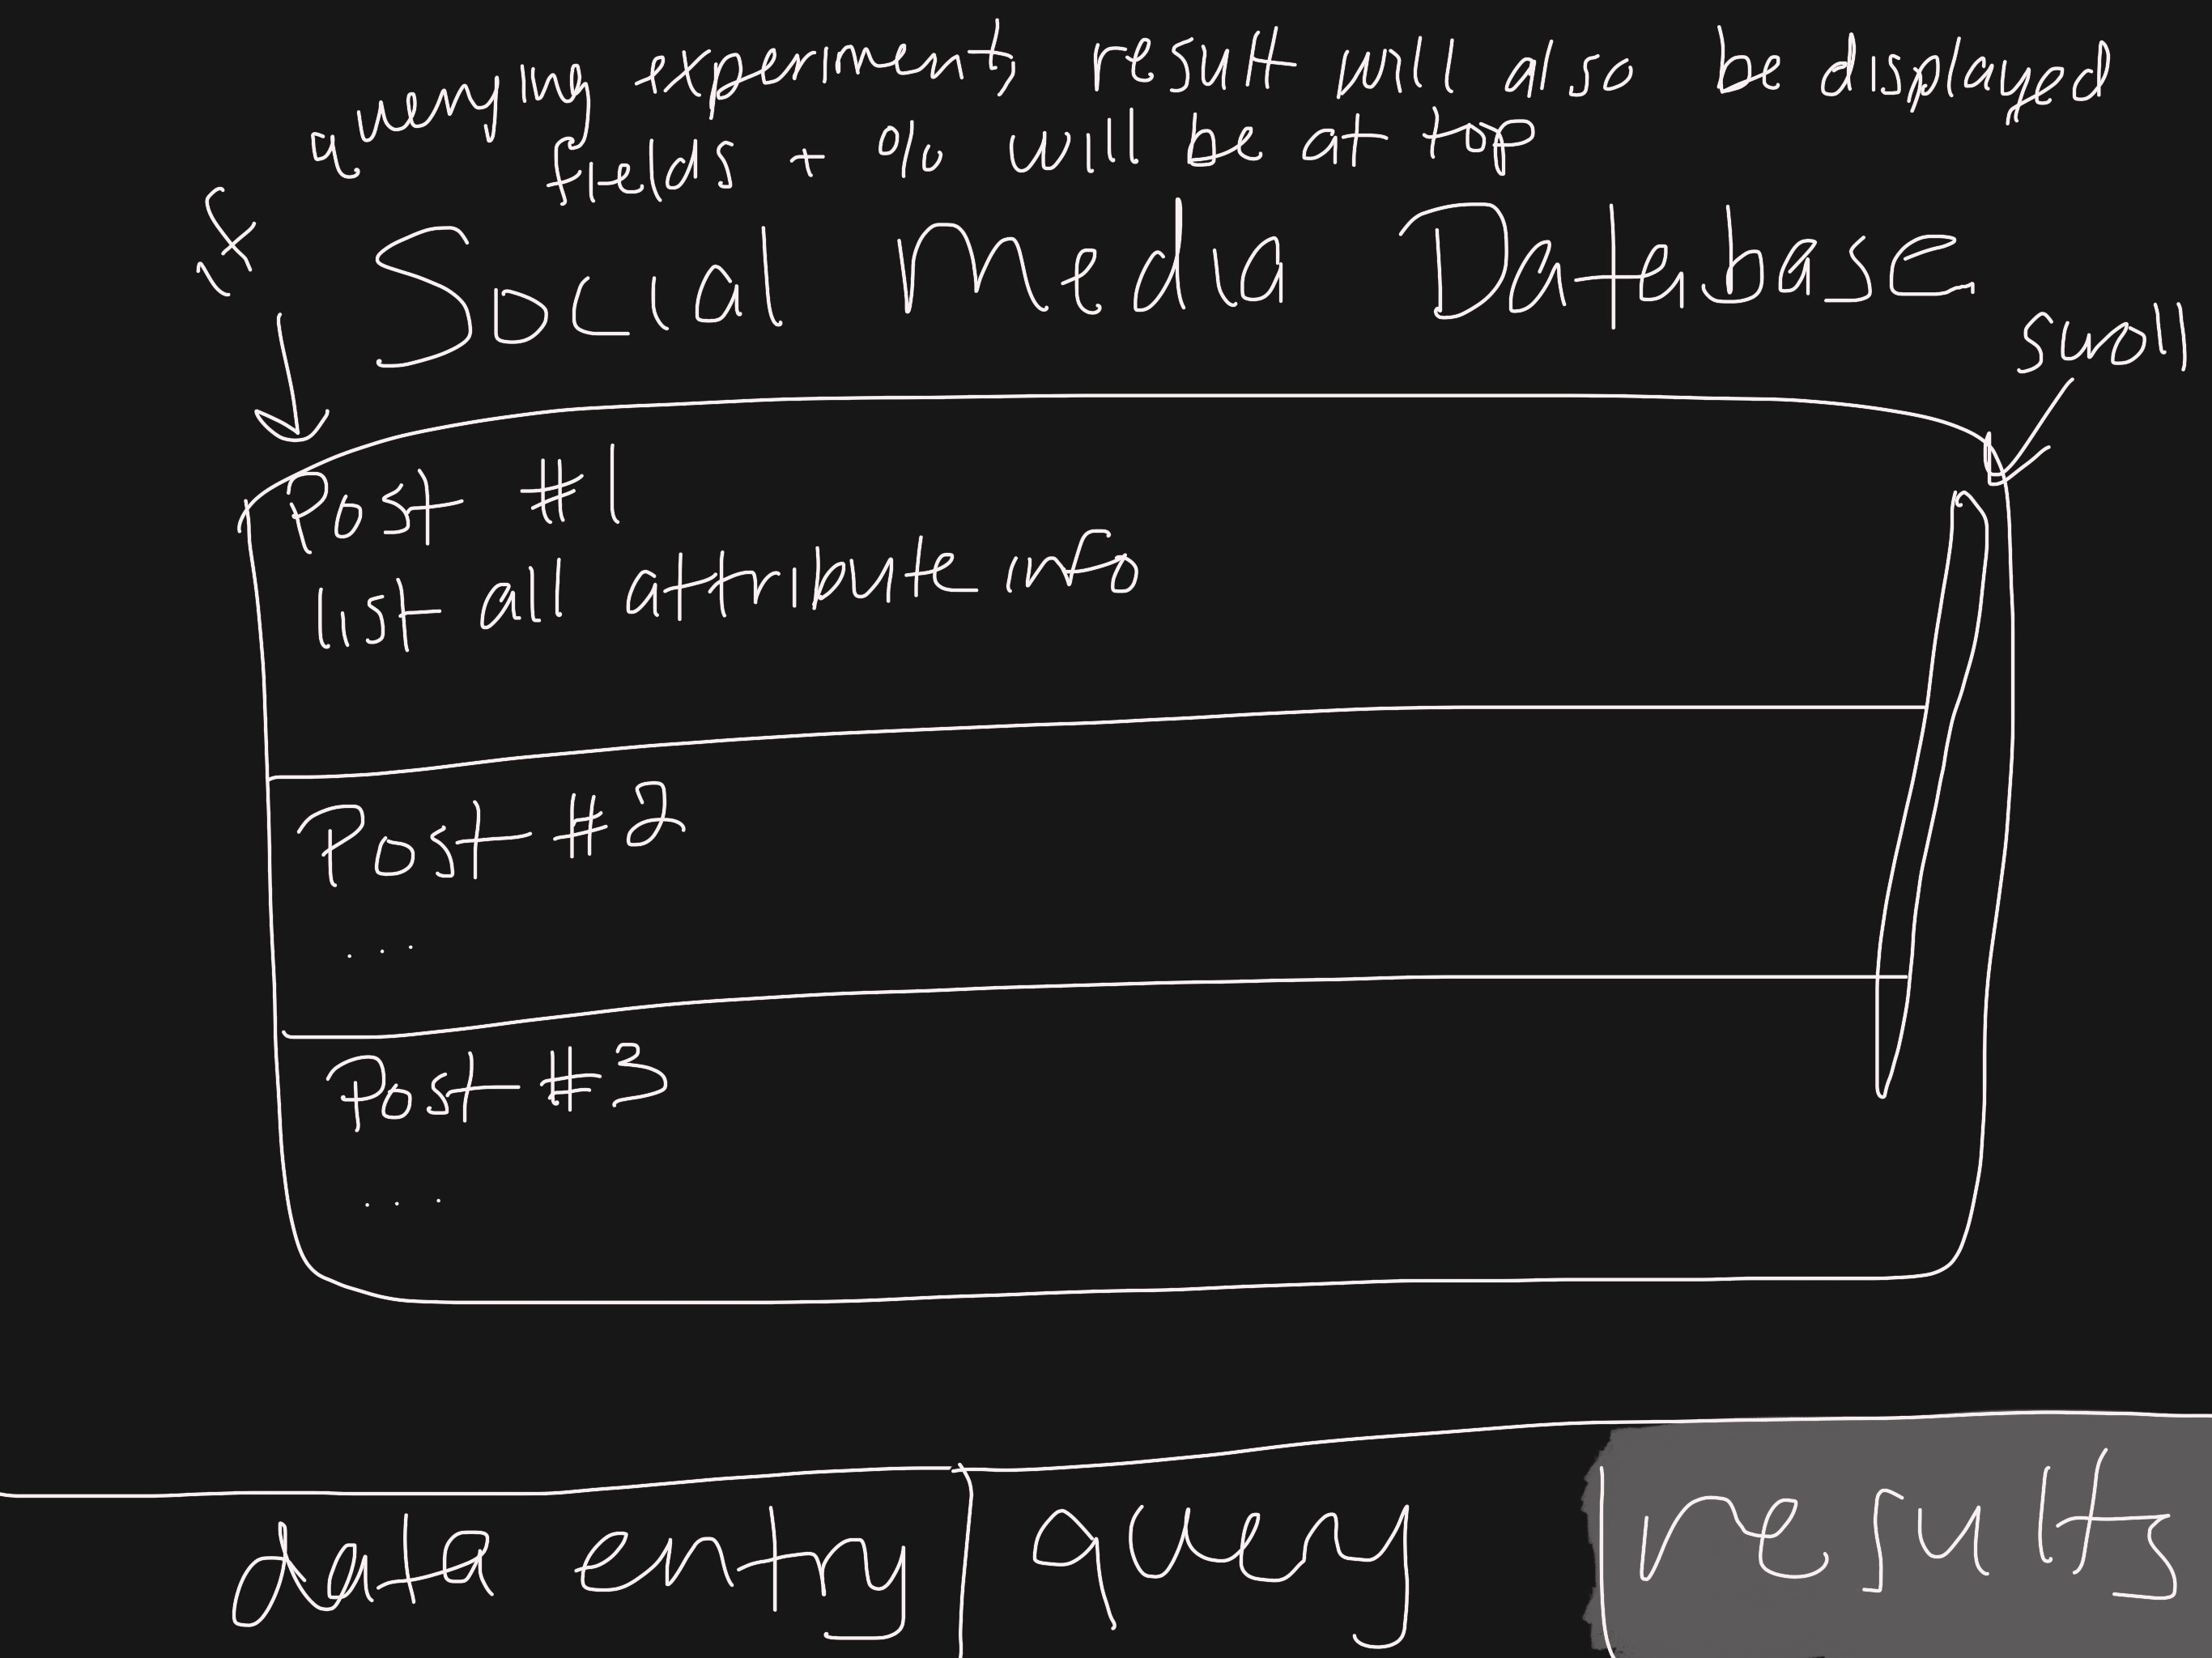 if querying experiment, result will also be displayed
fields + % will be at top
Social Media Database
scroll
Post #1
list all attribute info
Post #2
...
Post #3
...
data entry
query
results